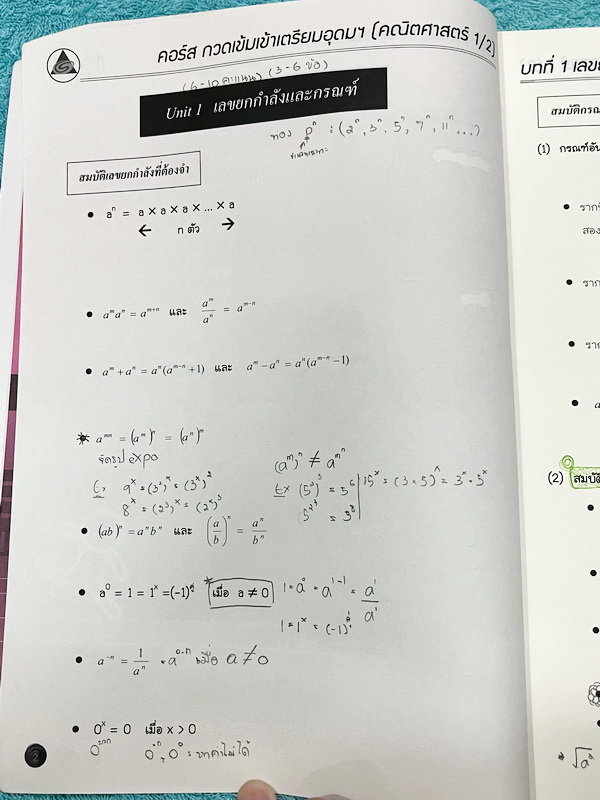 คอร์ส กวดเข้มเข้าเตรียมอุดมฯ (คณิตศาสตร์ 1/2)
(6-10 คะแนน) (3-6 ข้อ)
Unit 1 เลขยกกำลังและกรณฑ์
มอง pⁿ : (2ⁿ, 3ⁿ, 5ⁿ, 7ⁿ, 11ⁿ ...)
จำนวนเฉพาะ
สมบัติเลขยกกำลังที่ต้องจำ
• aⁿ = a × a × a × ... × a
← n ตัว →
• aᵐaⁿ = aᵐ⁺ⁿ และ aᵐ/aⁿ = aᵐ⁻ⁿ
• aᵐ + aⁿ = aⁿ(aᵐ⁻ⁿ + 1) และ aᵐ − aⁿ = aⁿ(aᵐ⁻ⁿ − 1)
aᵐⁿ = (aᵐ)ⁿ = (aⁿ)ᵐ
จัดรูป expo
(aᵐ)ⁿ ≠ a^m^n
Ex 9ˣ = (3²)ˣ = (3ˣ)²
8ˣ = (2³)ˣ = (2ˣ)³
Ex (5²)³ = 5⁶
5^2^3 = 5⁸
15ˣ = (3·5)ˣ = 3ˣ·5ˣ
• (ab)ⁿ = aⁿbⁿ และ (a/b)ⁿ = aⁿ/bⁿ
• a⁰ = 1 = 1ˣ = (-1) เมื่อ a ≠ 0
1 = a⁰ = a¹⁻¹ = a¹/a¹
1 = 1ˣ = (-1)
• a⁻ⁿ = 1/aⁿ = a⁰⁻ⁿ เมื่อ a ≠ 0
• 0ˣ = 0 เมื่อ x > 0
0⁻ⁿ, 0⁰ = หาค่าไม่ได้
2
บทที่ 1 เลขย
สมบัติกรณ
(1) กรณฑ์อัน
• รากที
สอง
• ราก
• ราก
• a
(2) สมบัติ